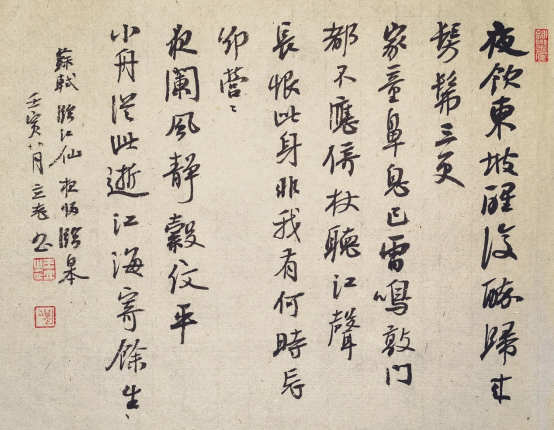 夜飲東坡醒復醉歸来
髣髴三更
家童鼻息已雷鳴敲門
都不應倚杖聽江聲
長恨此身非我有何時忘
卻營〻
夜闌風静縠紋平
小舟從此逝江海寄餘生
蘇軾臨江仙夜歸臨皋
壬寅八月立書